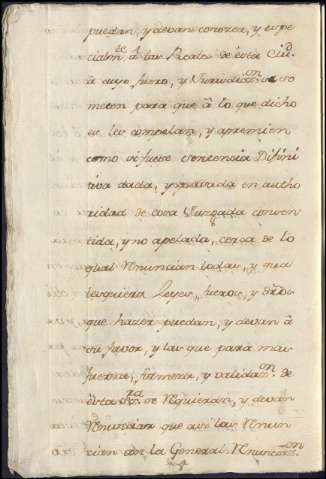 puedan, y devan conozer, y espe
cialmte. â las Reals. de esta Ciud.
â cuyo fuero, y Jurisdiazon. se so
meten para que â lo que dicho
es les compelan, y apremien
como si fuese Sentencia Difini
tiva dada, y pasada en autho
ridad de cosa Juzgada consen
tida, y no apelada, cerca de lo
qual Renuncian todas, y qua
lesquiera Leyes, fueros, y dros.
que hazer puedan, y devan â
su favor, y las que para mas
fuerza, firmeza, y validazon. de
esta Esra. se Requieran, y devan
Renunciar que aqui las Renun
cian con la General Renunciazon